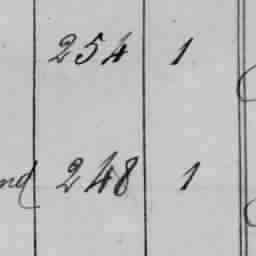 254 1
nd 248 1